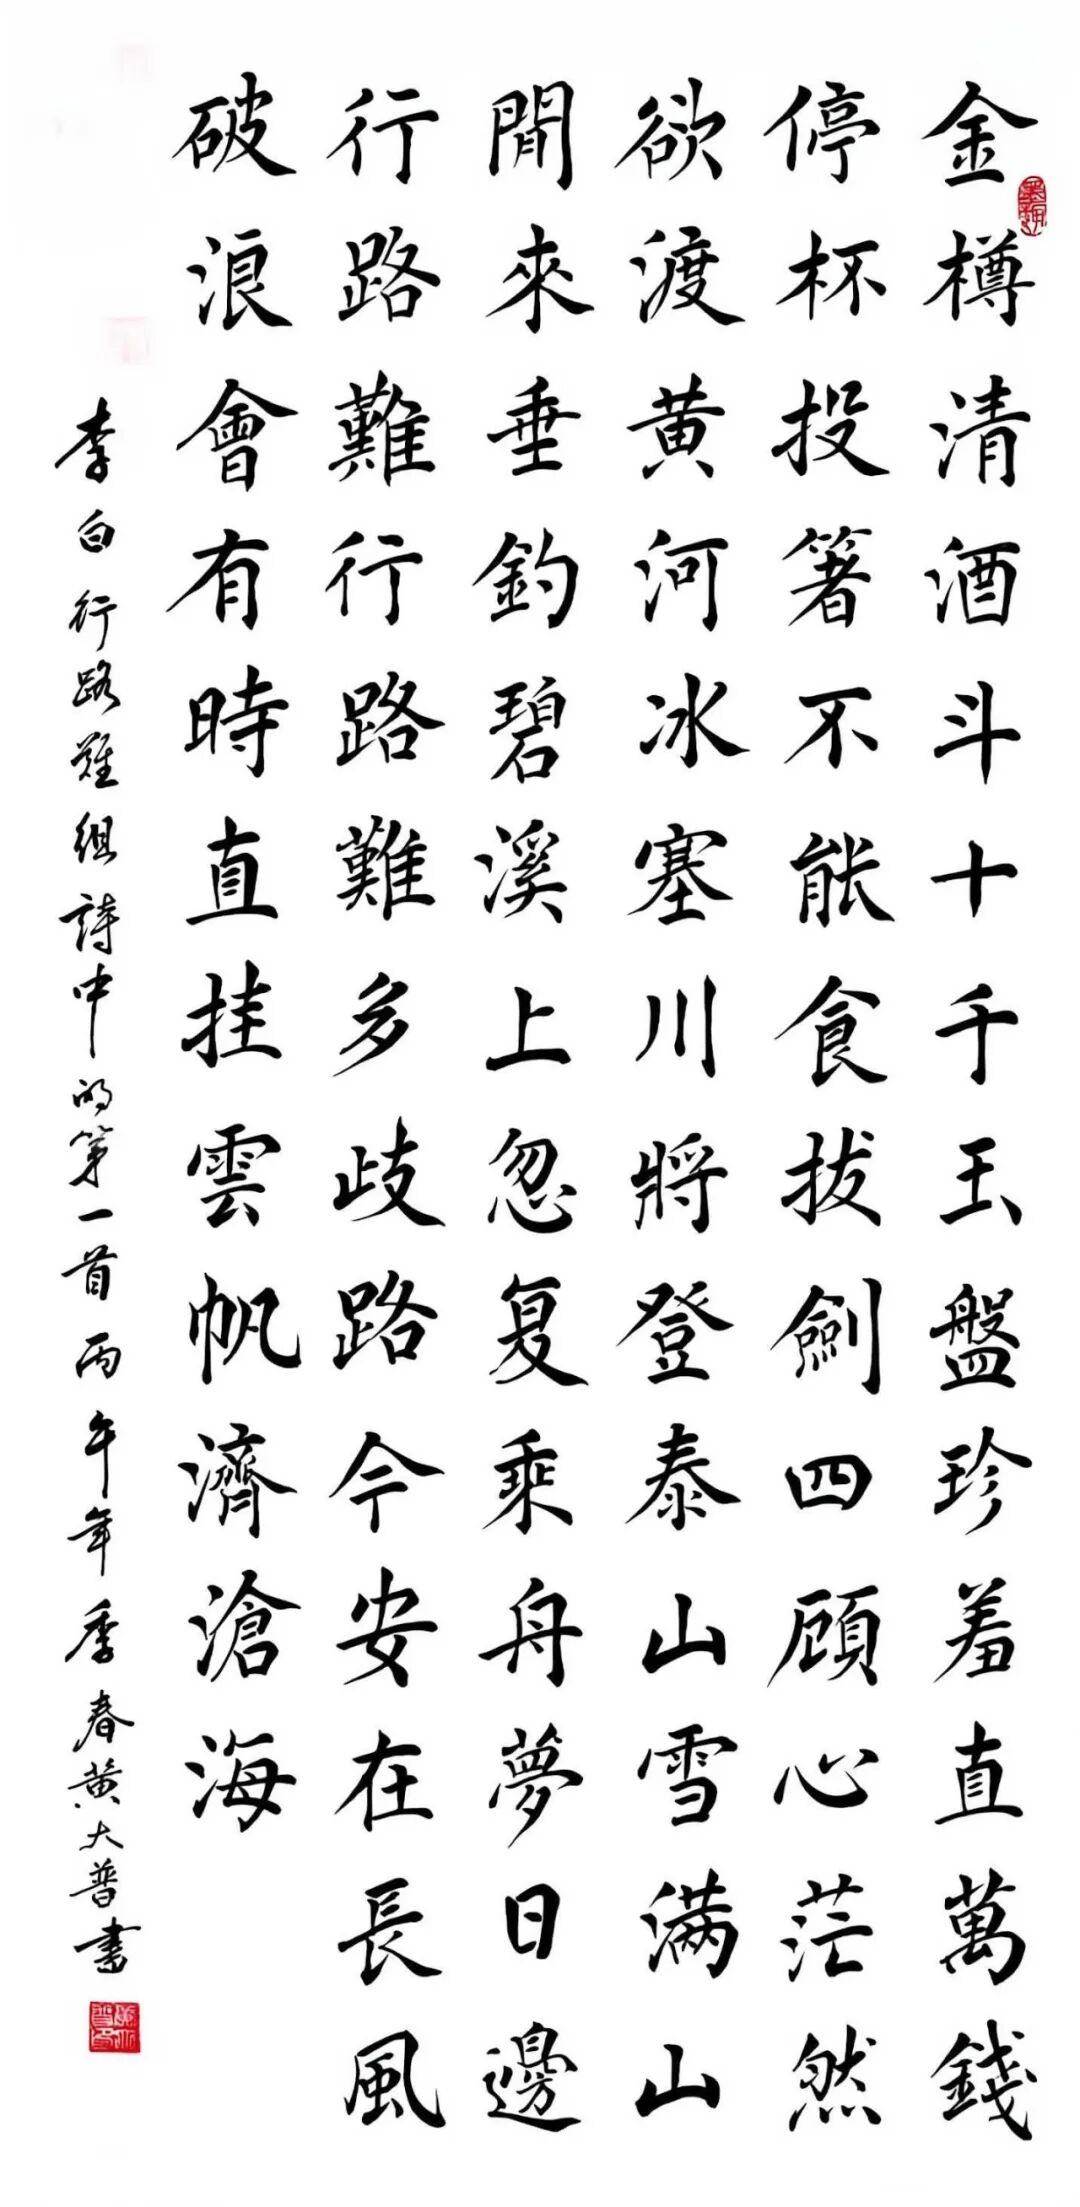 金樽清酒斗十千玉盤珍羞直萬錢
停杯投箸不能食拔劍四顧心茫然
欲渡黄河冰塞川將登泰山雪滿山
閒來垂釣碧溪上忽复乘舟夢日邊
行路難行路難多歧路今安在長風
破浪會有時直挂雲帆濟滄海
李白行路難組詩中的第一首丙午年季春黄大普書